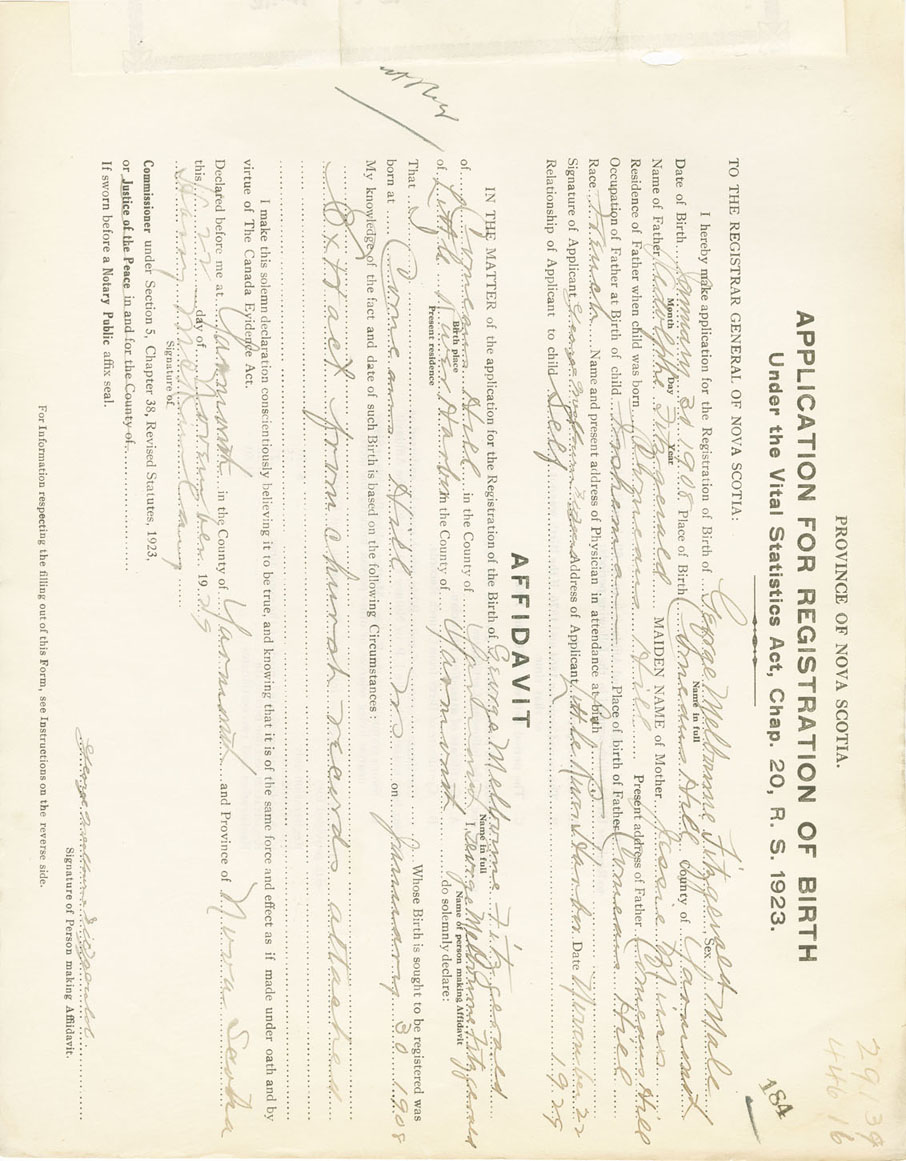 29139
44616
184
PROVINCE OF NOVA SCOTIA.
APPLICATION FOR REGISTRATION OF BIRTH
Under the Vital Statistics Act, Chap. 20, R. S. 1923.
TO THE REGISTRAR GENERAL OF NOVA SCOTIA:
I hereby make application for the Registration of Birth of George Melbourne Fitzgerald Sex Male
Name in full
Date of Birth January 30 1908 Place of Birth Comeaus Hill County of Yarmouth
Month Day Year
Name of Father Fitzgerald MAIDEN NAME of Mother
Residence of Father when child was born Comeaus Hill Present address of Father Comeaus Hill
Occupation of Father at Birth of child Place of birth of Father Comeaus Hill
Race Name and present address of Physician in attendance at birth
Signature of Applicant George Address of Applicant Little River Harbor Date November 22 1929
Relationship of Applicant to child Self
AFFIDAVIT
IN THE MATTER of the application for the Registration of the Birth of George Melbourne Fitzgerald
Name in full
of Comeaus Hill in the County of Yarmouth I, George Melbourne Fitzgerald
Birth place Name of person making Affidavit
of Little River Harbor in the County of Yarmouth do solemnly declare:
Present residence
That I Whose Birth is sought to be registered was
born at Comeaus Hill on January 30 1908
My knowledge of the fact and date of such Birth is based on the following Circumstances:
Extract from church records attached
I make this solemn declaration conscientiously believing it to be true, and knowing that it is of the same force and effect as if made under oath and by
virtue of The Canada Evidence Act.
Declared before me at Yarmouth in the County of Yarmouth and Province of Nova Scotia
this day of November 1929
Signature of
Commissioner under Section 5, Chapter 38, Revised Statutes, 1923,
or Justice of the Peace in and for the County of
If sworn before a Notary Public affix seal.
George Melbourne Fitzgerald
Signature of Person making Affidavit.
For Information respecting the filling out of this Form, see Instructions on the reverse side.